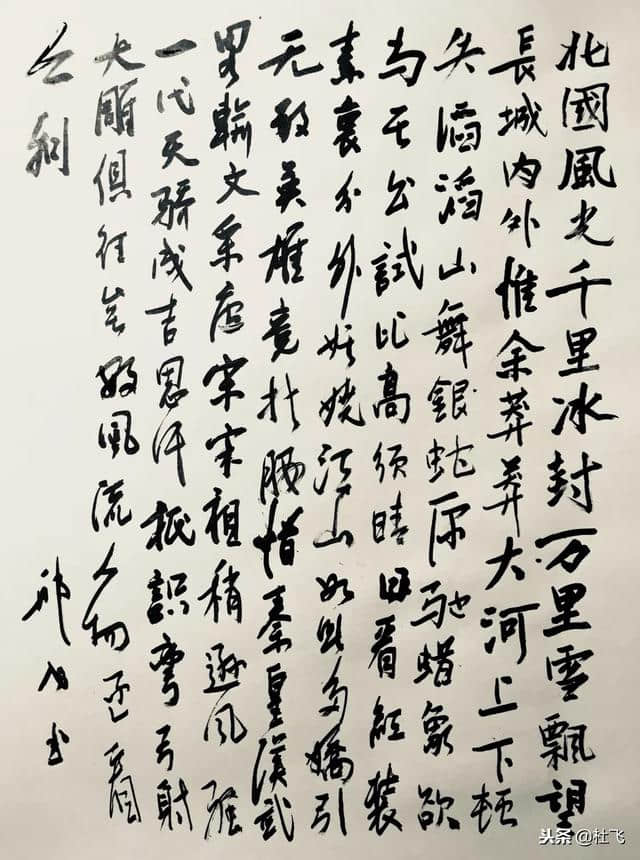 北國風光千里冰封万里雪飄望
長城内外惟余莽莽大河上下頓
失滔滔山舞銀蛇原馳蜡象欲
与天公試比高須晴日看红装
素裹分外妖嬈江山如此多嬌引
无数英雄竞折腰惜秦皇漢武
畧輸文采唐宗宋祖稍遜风骚
一代天骄成吉思汗祗識弯弓射
大雕俱往矣数風流人物还看
今朝
书
头条@杜飞